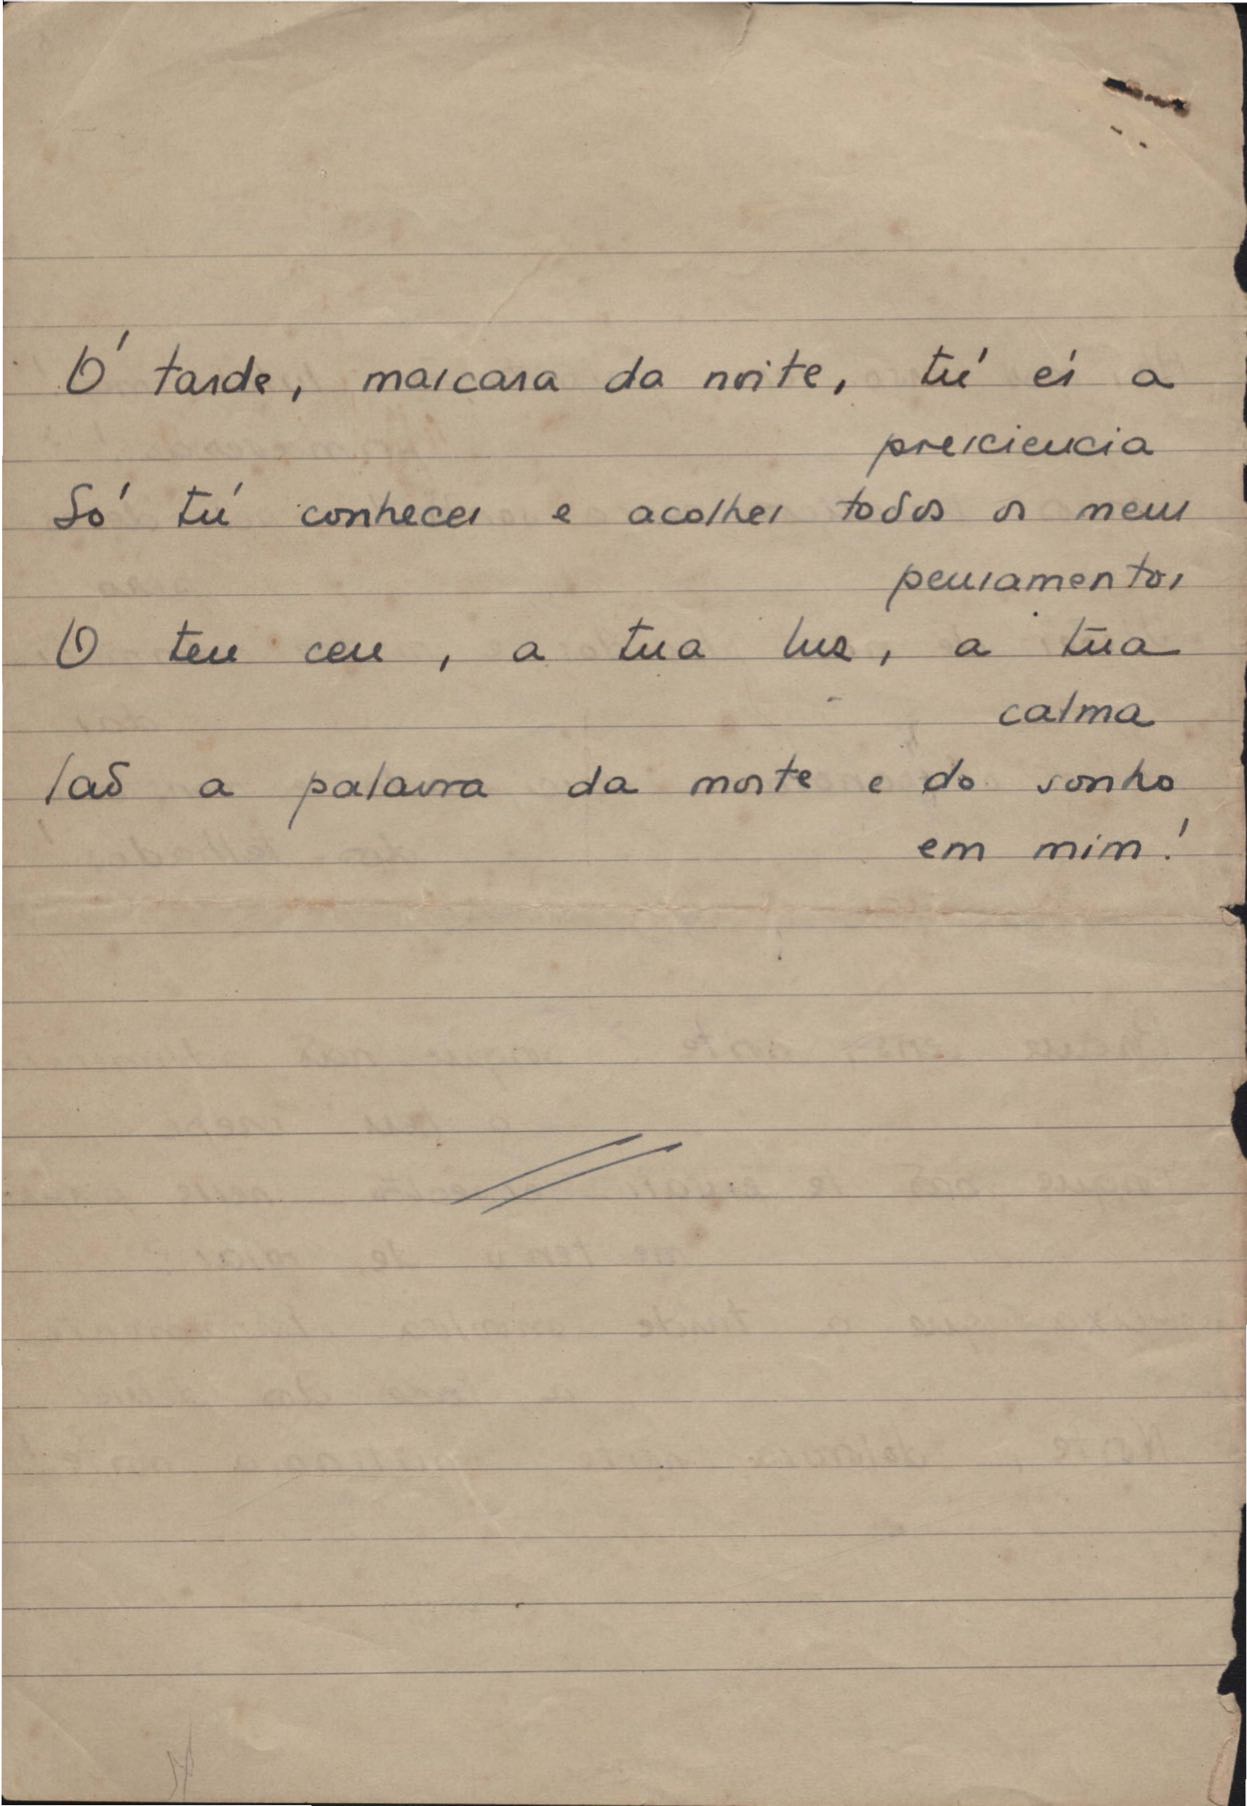 Ó tarde, mascara da noite, tú és a
presciencia
Só tú conheces e acolhes todos os meus
pensamentos
O teu ceu, a tua luz, a tua
calma
Saõ a palavra da morte e do sonho
em mim!